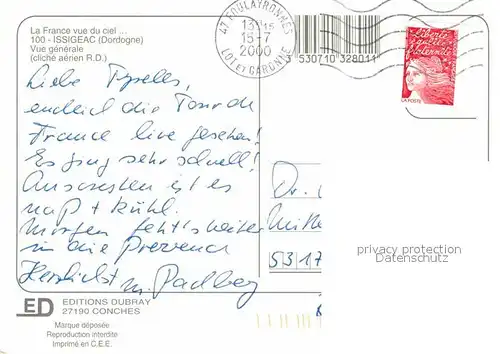 La France vue du ciel ...
100 - ISSIGEAC (Dordogne)
Vue générale
(cliché aérien R.D.)
47 FOULAYRONNES
13H15
15-7
2000
LOT ET GARONNE
3 530710 328011
Liberté
égalité
fraternité
LA POSTE
Liebe
endlich die Tour de
France live gesehen!
Es ging sehr schnell!
Ansonsten ist es
naß + kühl.
Morgen geht's weiter
in die Provence
Herzlichst M. Padberg
Dr.
5317
privacy protection
Datenschutz
ED EDITIONS DUBRAY
27190 CONCHES
Marque déposée
Reproduction interdite
Imprimé en C.E.E.